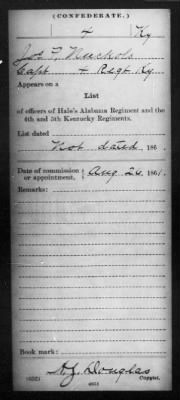 (CONFEDERATE.)
4 Ky
Jos P Nuckols
Capt 4 Regt Ky
Appears on a
List
of officers of Hale's Alabama Regiment and the
4th and 5th Kentucky Regiments.
List dated
Not dated, 186 .
Date of commission
or appointment. Aug 24, 1861.
Remarks:
Book mark:
A.J. Douglas
Copyist.